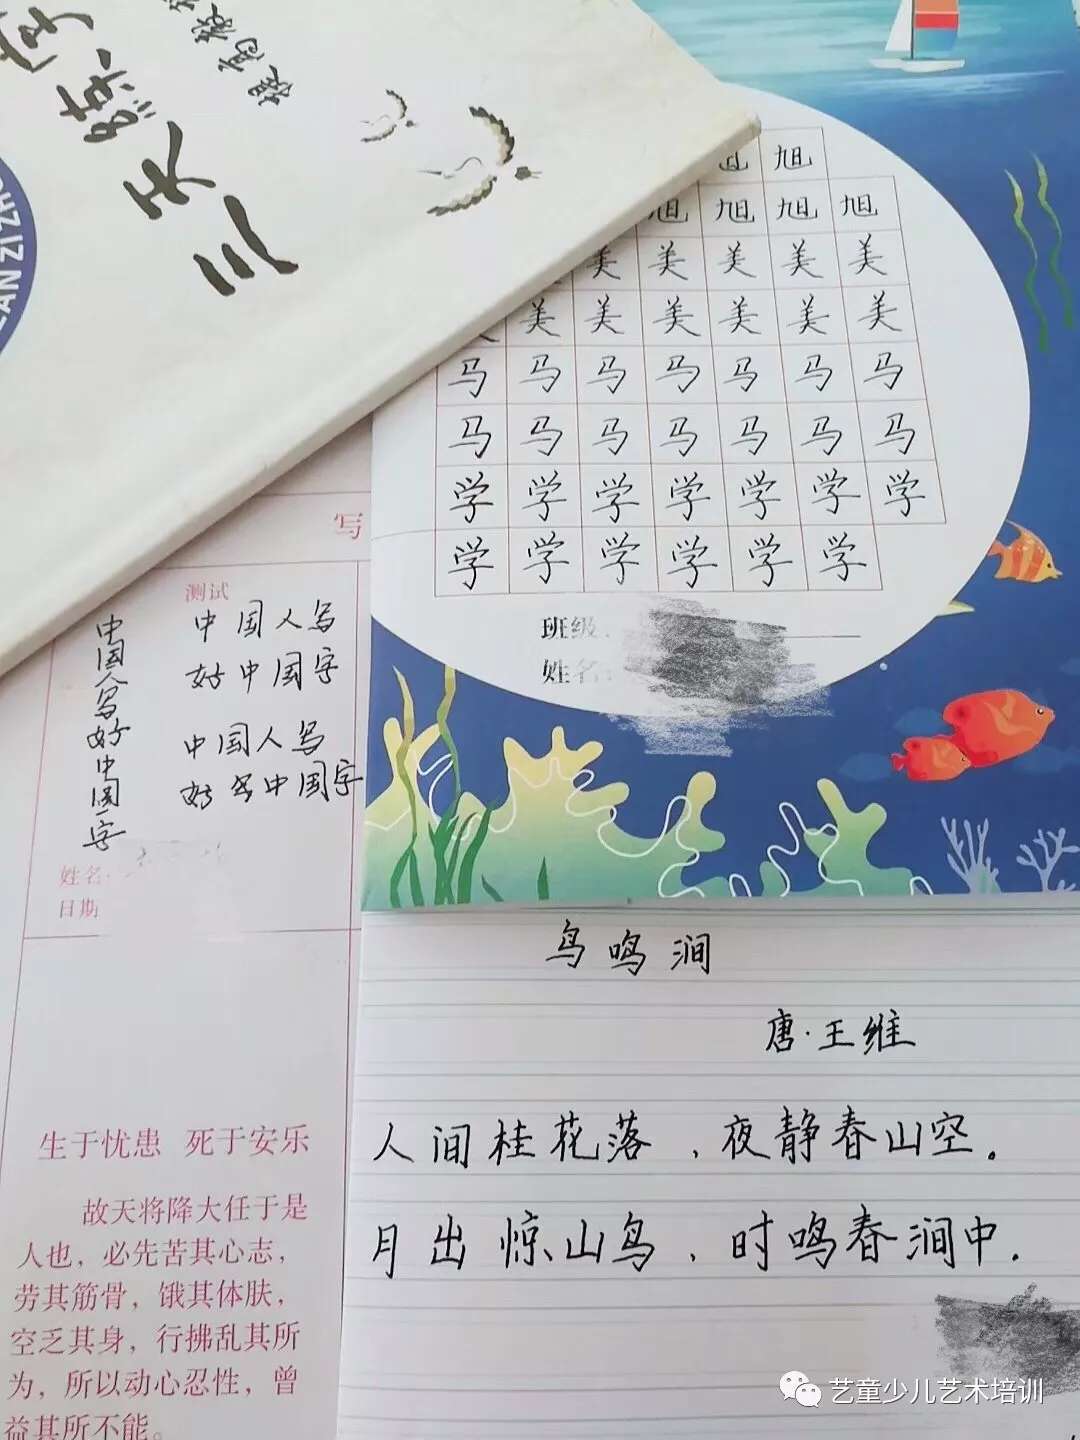 三天练字
提高
AN ZI ZH
旭
旭 旭 旭 旭
美 美 美 美 美
美 美 美 美 美 美
马 马 马 马 马 马 马
马 马 马 马 马 马 马
学 学 学 学 学 学 学
学 学 学 学 学 学
班级:
姓名:
写
测试
中国人写好中国字
中国人写
好中国字
中国人写
好写中国字
姓名:
日期
生于忧患 死于安乐
故天将降大任于是
人也，必先苦其心志，
劳其筋骨，饿其体肤，
空乏其身，行拂乱其所
为，所以动心忍性，曾
益其所不能。
鸟鸣涧
唐·王维
人间桂花落，夜静春山空。
月出惊山鸟，时鸣春涧中.
艺童少儿艺术培训